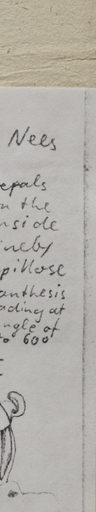 Nees
epals
n the
nside
inely
pillose
anthesis
ading at
ngle of
to 600